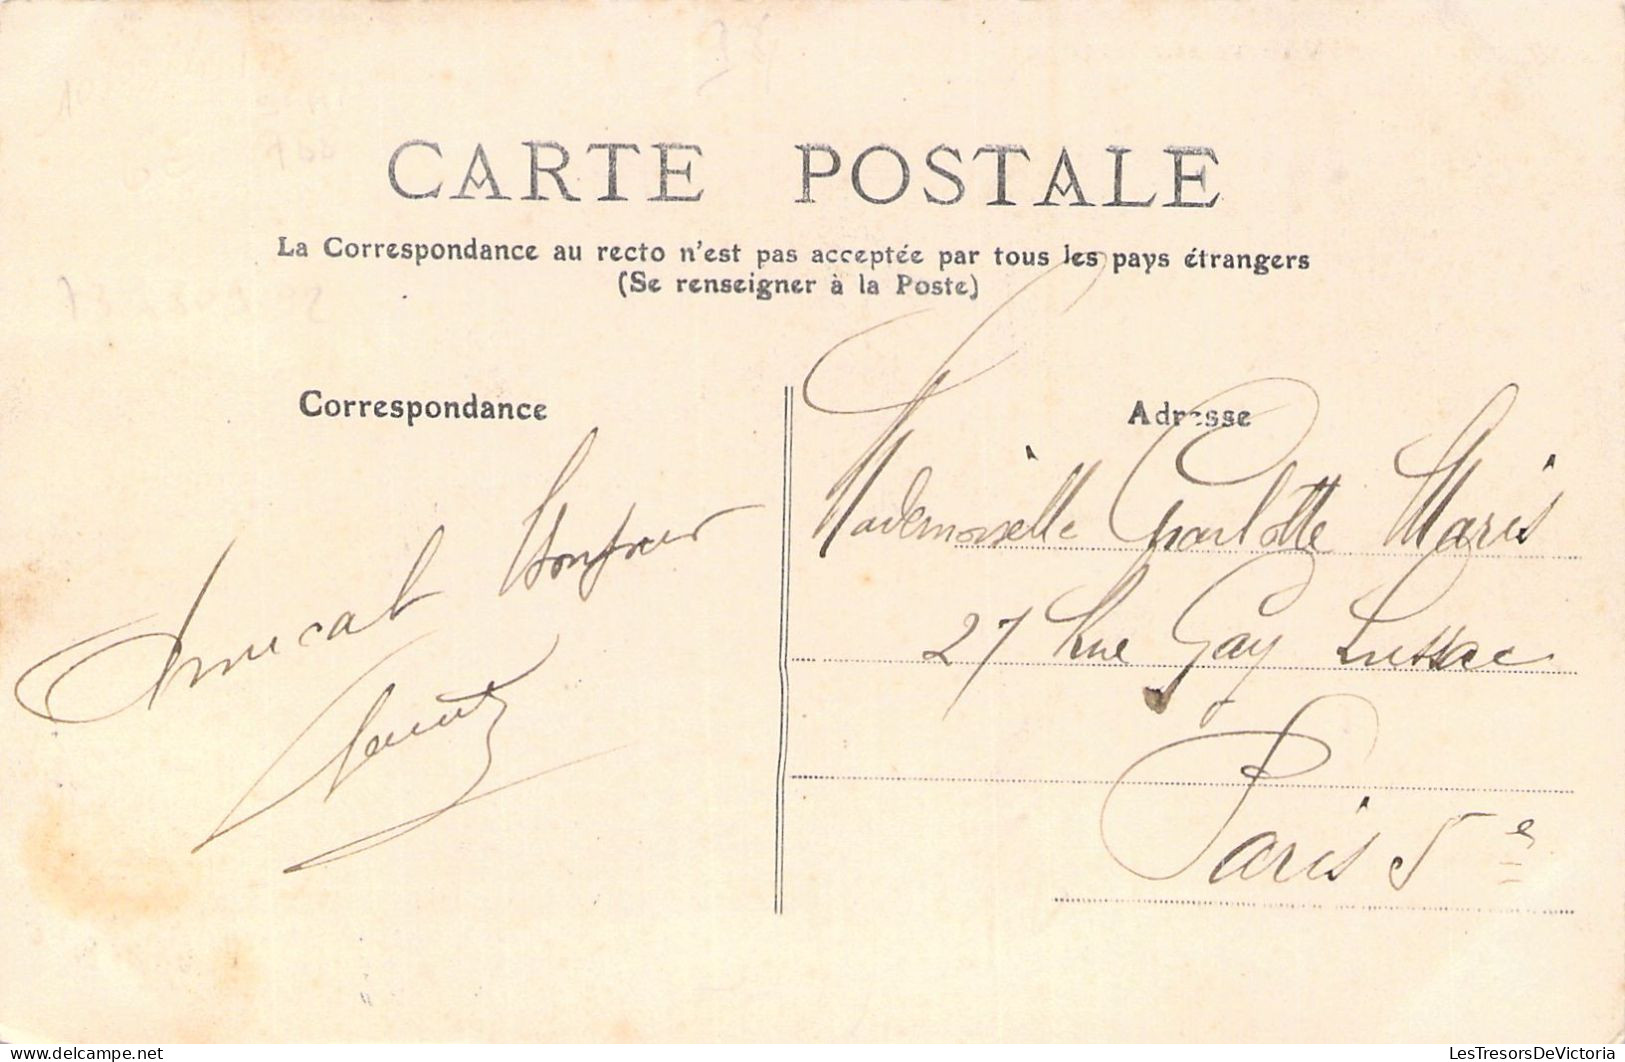 CARTE POSTALE
La Correspondance au recto n'est pas acceptée par tous les pays étrangers
(Se renseigner à la Poste)
Correspondance
Amical bonjour
Adresse
Mademoiselle Charlotte Maris
27 Rue Gay Lussac
Paris 5e
LesTresorsDeVictoria